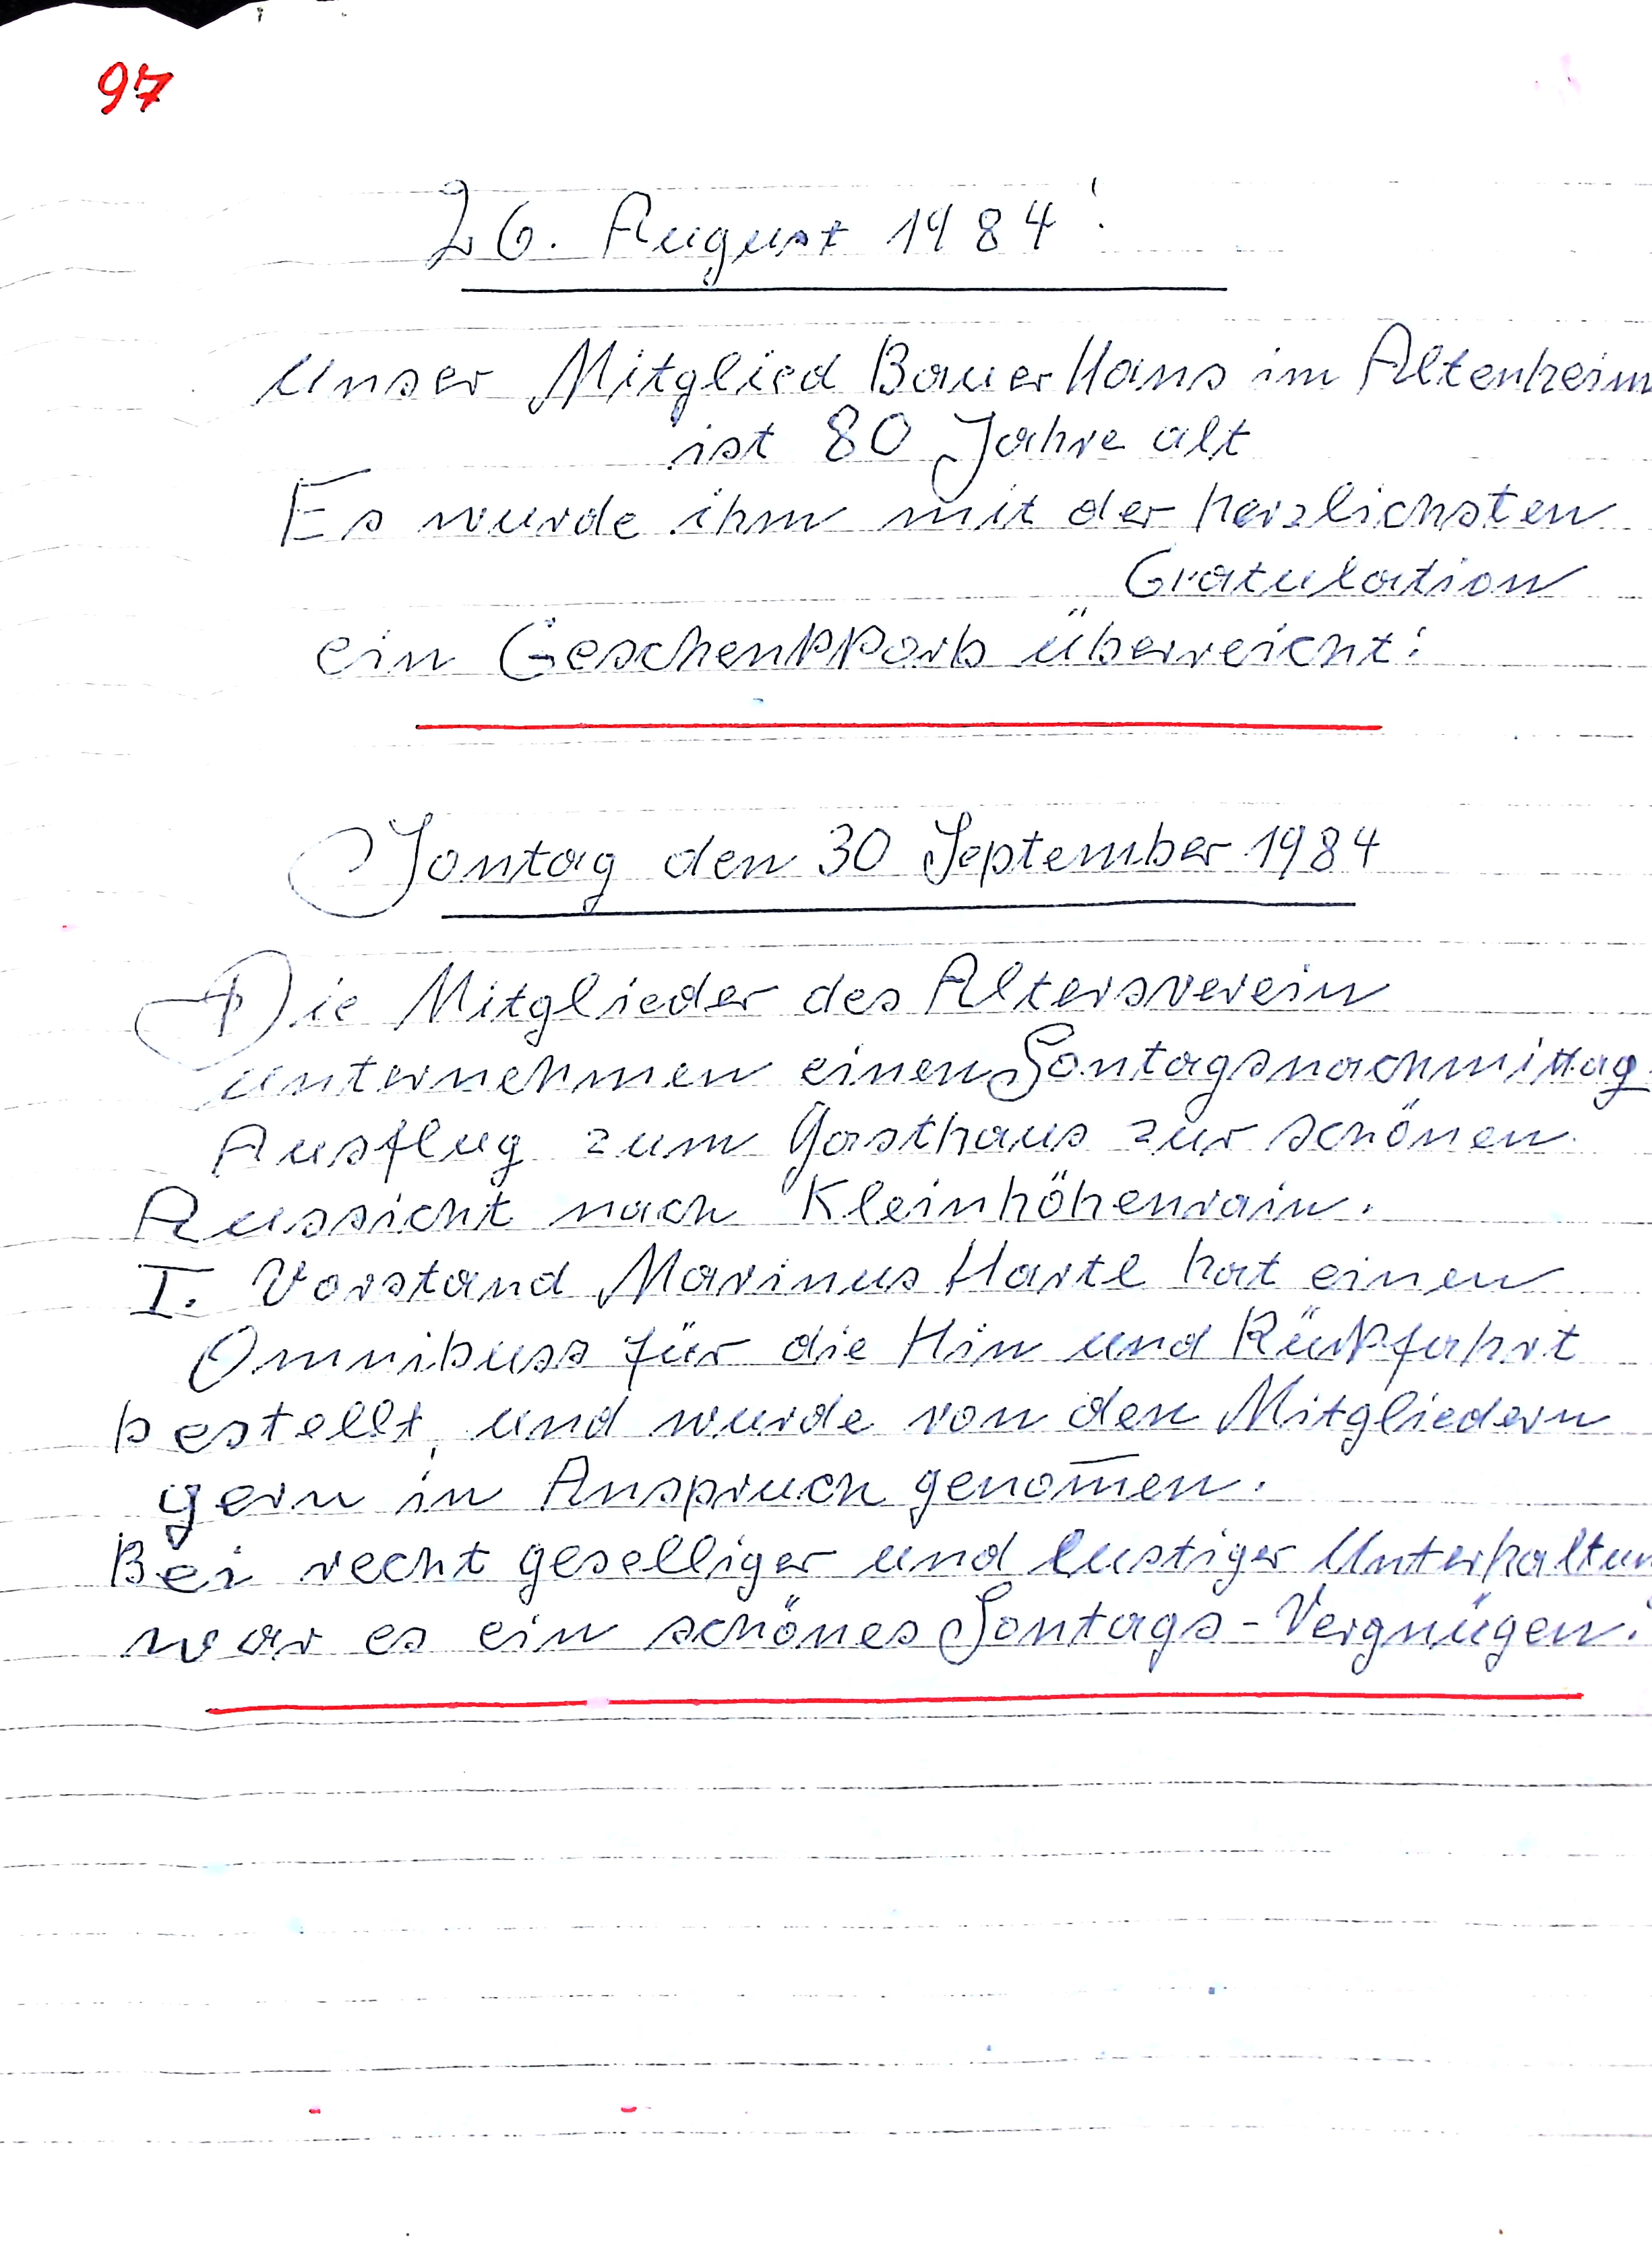 97
26. August 1984!
Unser Mitglied Bauer Hans im Altenheim
ist 80 Jahre alt
Es wurde ihm mit der herzlichsten
Gratulation
ein Geschenkkorb überreicht!
Sontag den 30 September 1984
Die Mitglieder des Altersverein
unternehmen einen Sontagsnachmittag
Ausflug zum Gasthaus zur schönen
Aussicht nach Kleinhöhenrain.
I. Vorstand Marinus Hartl hat einen
Omnibuss für die Hin und Rükfahrt
bestellt, und wurde von den Mitgliedern
gern in Anspruch genom̅en.
Bei recht geselliger und lustiger Unterhaltun
war es ein schönes Sontags-Vergnügen!